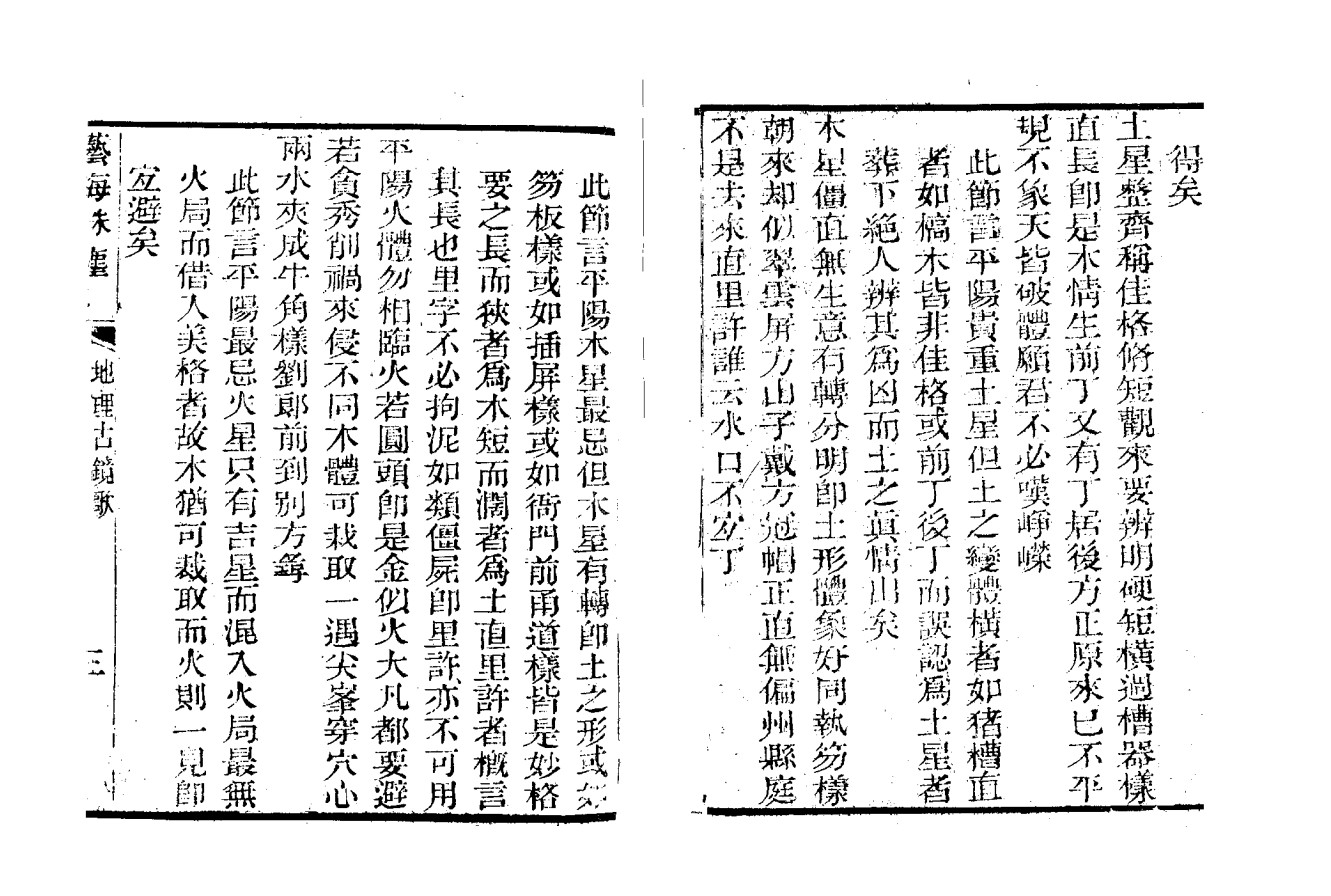 得矣
土星整齊稱佳格脩短觀來要辨明硬短橫過槽器樣
直長卽是木情生前丁又有丁居後方正原來已不平
規不象天皆破體願君不必嘆崢嶸
此節言平陽貴重土星但土之變體橫者如猪槽直
者如槁木皆非佳格或前丁後丁而誤認爲土星者
葬下絕人辨其爲凶而土之眞情出矣
木星僵直無生意有轉分明卽土形體象好同執笏樣
朝來却似翠雲屏方山子戴方冠帽正直無偏州縣庭
不是去來直里許誰云水口不宐丁
此節言平陽木星最忌但木星有轉卽土之形或如
笏板樣或如插屏樣或如衙門前甬道樣皆是妙格
要之長而狹者爲木短而濶者爲土直里許者槪言
其長也里字不必拘泥如類僵屍卽里許亦不可用
平陽火體勿相臨火若圓頭卽是金似火大凡都要避
若貪秀削禍來侵不同木體可栽取一遇尖峯穿穴心
兩水夾成牛角樣劉郎前到別方尋
此節言平陽最忌火星只有吉星而混入火局最無
火局而借入美格者故木猶可裁取而火則一見卽
宐避矣
藝海珠塵 地理古鏡歌 三